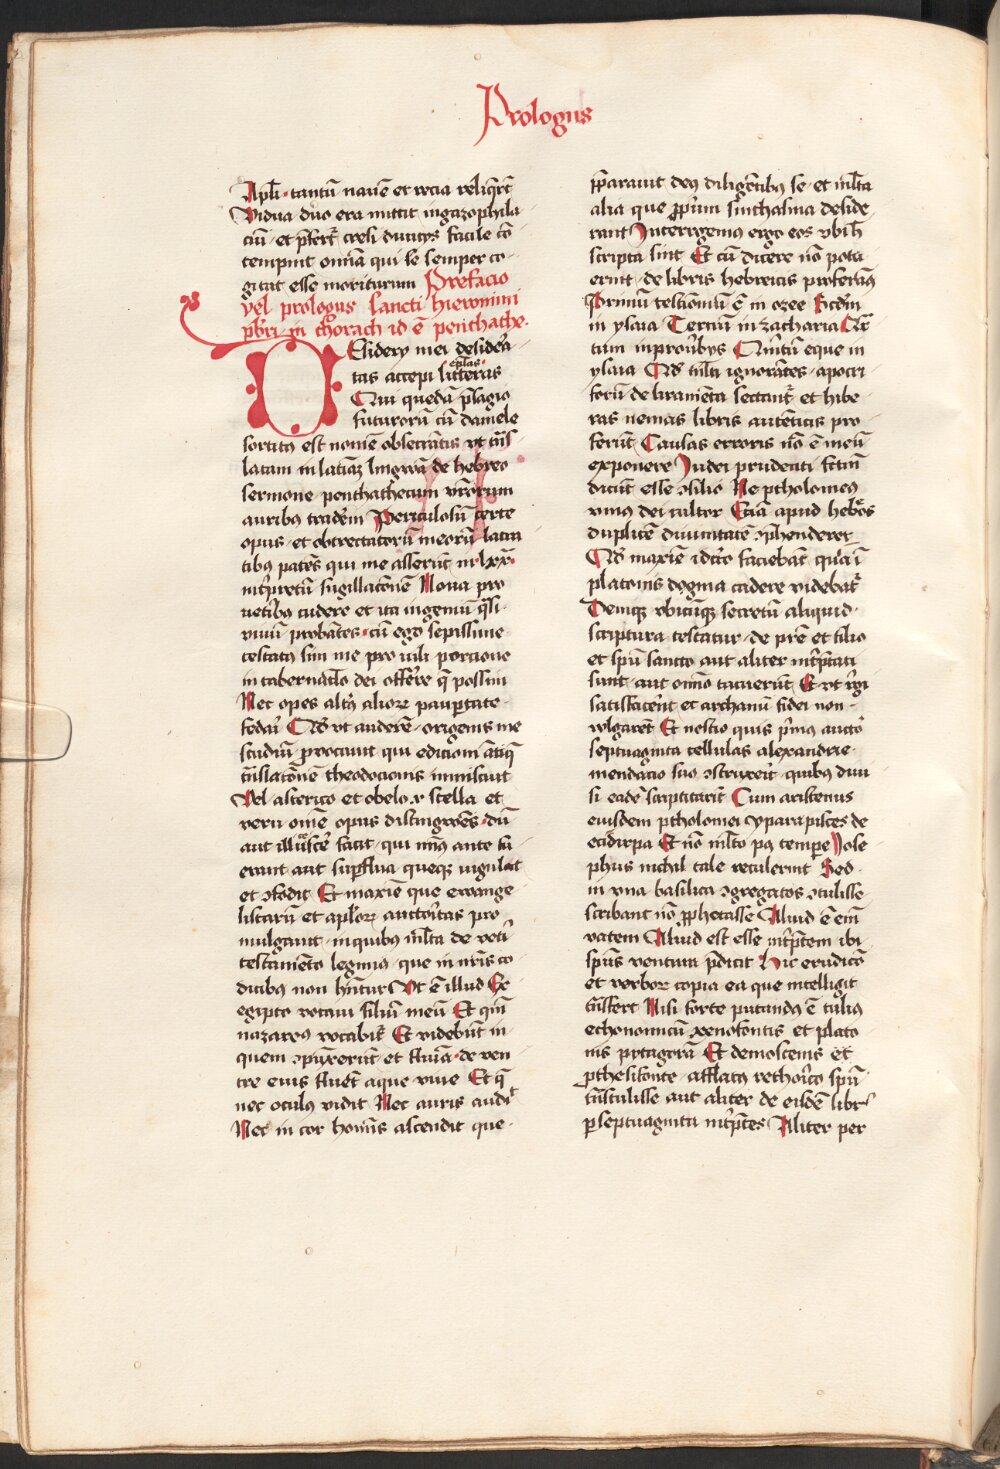 Prologus
Apl̄i · tantū nauē et recia reliq̄rt̄
Vidua duo era mittit in gazophila
ciū · et p̄fert᷑ cresi diuicijs facile cō
tempnit om̄ia qui se semper co
gitat esse moriturum Prefacio
vel prologus sancti hieronimi
pbr̄i in thorach id ē penthathe·
DEsiderij mei desidera
tas accepi epl̄as litteras
Qui quedā p̄sagio
futurorū cū daniele
sortitus est nomē obsecrātis vt tn̄s
latam in latinā lingwā de hebreo
sermone penthathecum vr̄orum
auribꝰ tradē̄m Periculosū certe
opus · et obtrectatorū meorū latra
tibꝰ patēs qui me asserūt in lxx·
int̄pretū sugillatōnē Noua pro
vetibꝰ cudere et ita ingeniū q̄si
vinū probātes · cū ego sepissime
testatꝰ sim me pro uili porcione
in tabernacl̄o dei offēre q̄ possim
Nec opes altꝰi alioꝝ paup̄tate
fedari Qd̄ vt auderē · origenis me
studiū p̄uocauit qui edicioni ātiq̄
tn̄slatōnē theodocionis inmiscuit
Vel asterico et obelo · v stella et
veru om̄e opus distingwēs · dū
aut illucescē̄ facit · qui minꝰ ante fu
erant aut sup̄flua queqꝫ iugulat
et ↄfodit Et maxīe que ewange
listarū et apl̄oꝝ auctoritas pro
mulgauit · in quibꝰ ml̄ta de veti
testamēto legimꝰ · que in nr̄is co
dicibꝰ non hn̄tur Vt ē illud Ex
egipto vocaui filiū meū Et qm̄
nazareꝰ vocabit᷑ Et videbūt in
quem ↄpūxerūt et flūia · de ven
tre eius fluēt aque viue Et q̄
nec oculꝰ vidit Nec auris audi
Nec in cor homīs ascendit que ·
p̄parauit deꝰ diligētibꝰ se · et ml̄ta
alia que p̄p̄um sinthasma deside
rant Interrogemꝰ ergo eos vbi h̄
scripta sint Et cū dicere nō pota
erint · de libris hebreicis proferimꝰ
Primū testīoniū ē in ozee Scdm̄
in ysaia Terciū in zacharia Qr̄
tum in prouꝰbijs Quītū eque in
ysaia Qd̄ ml̄ti ignorātes · apocri
forū deliramēta sectant᷑ et hibe
ras nemas libris autēticis pro
ferūt Causas erroris nō ē meū
exponere Iudei prudenti fctm̄
dicūt esse ↄsilio Ne ptholomeꝰ
vniꝰ dei cultor Eciā apud hebr̄os
duplicē diuinitatē ↄp̄henderet
Qd̄ maxīe idcirco faciebāt quia ī
platonis dogma cadere videbat᷑
Deniqꝫ vbicūqꝫ secretū aliquid
scriptura testatur · de pr̄e et filio
et spū sancto aut aliter int̄p̄tati
sunt · aut om̄īo tacuerūt Et vt r̄gi
satisfacēnt et archanū fidei non
wlgarēt Et nescio quis p̄mꝰ auctō
septuaginta cellulas alexandrie
mendacio suo ↄstruxerit · quibꝰ diui
si eadē scriptitarīt Cum aristenus
eiusdem ptholomei yparapistes de
ecidirpa Et nō ml̄to pꝰ tempe Iose
phus nichil tale retulerint Sed
in vna basilica ↄgregatos ↄtulisse
scribant nō p̄phetasse Aliud ē em̄
vatem Aliud est esse int̄p̄tem ibi
spūs ventura p̄dicit Hic erudicō
et verboꝝ copia ea que intelligit
tn̄sfert Nisi forte putandꝰ ē tulius
echonomicū xenofontis et plato
nis pytagorā Et demostenis et
prothesifonte · afflatꝰ rethorīco spū
tn̄stulisse aut aliter de eisdē libr
p septuaginta int̄p̄tes Aliter per